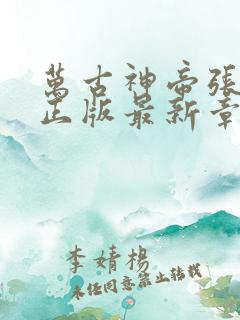 萬古神帝張
正版最新章
李婧楊
未经同意禁止转载